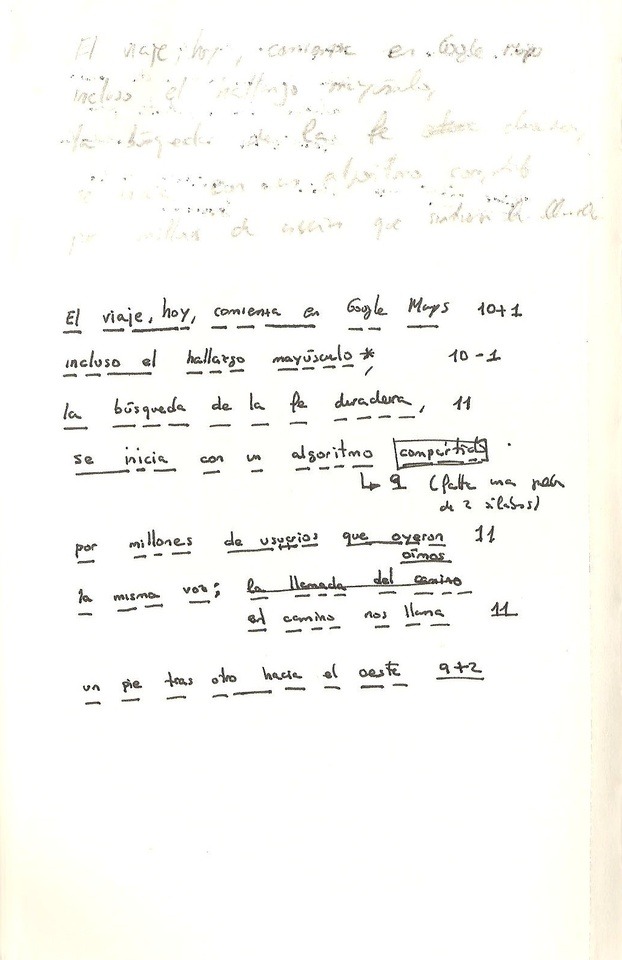 El viaje, hoy, comienza en Google Maps
incluso el hallazgo mayúsculo,
la búsqueda de la fe duradera,
se inicia con un algoritmo
por millones de usuarios que la llamada
El viaje, hoy, comienza en Google Maps 10+1
incluso el hallazgo mayúsculo*, 10-1
la búsqueda de la fe duradera, 11
se inicia con un algoritmo compartido.
9 (falta una palabra
de 2 sílabas)
por millones de usuarios que oyeron 11
oímos
la misma voz; la llamada del camino
el camino nos llama 11
un pie tras otro hacia el oeste 9+2